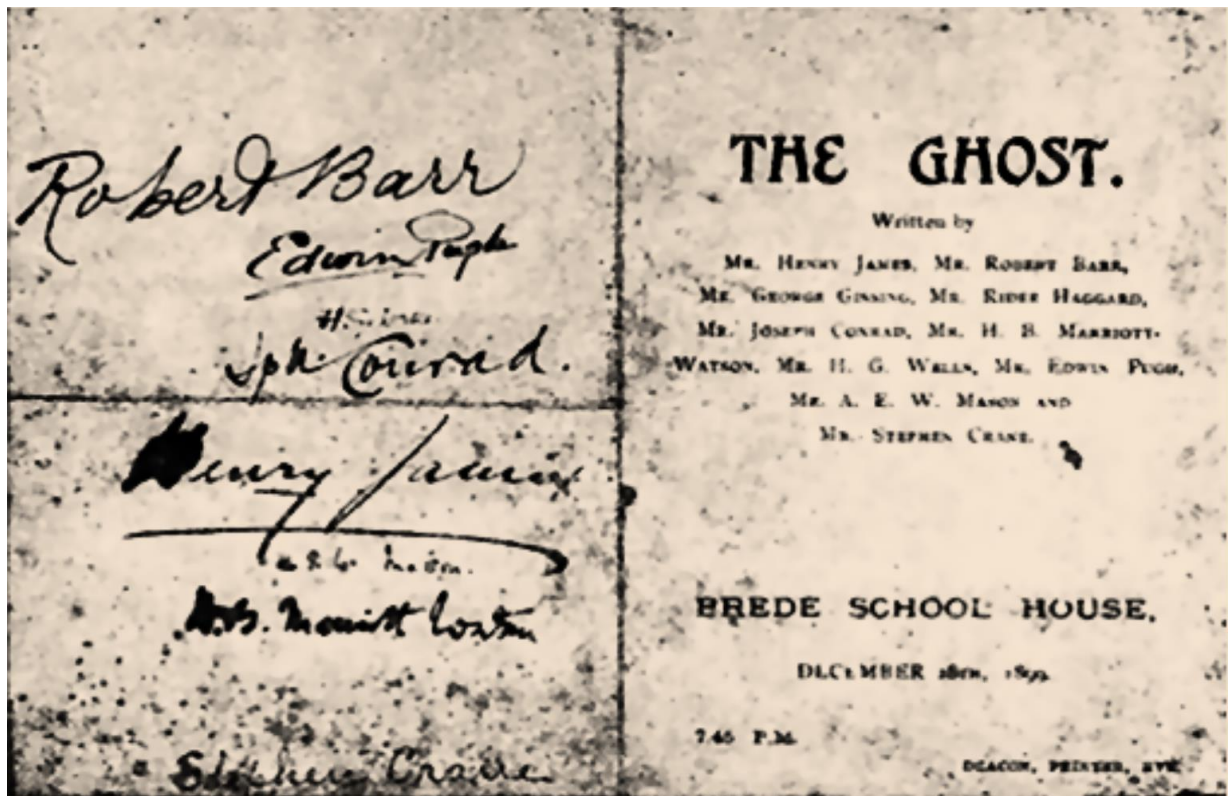 Robert Barr
Edwin Pugh
Jph Conrad.
Henry James
A E W Mason.
H.B. Marriott Watson
Stephen Crane
THE GHOST.
Written by
MR. HENRY JAMES, MR. ROBERT BARR,
MR. GEORGE GISSING, MR. RIDER HAGGARD,
MR. JOSEPH CONRAD, MR. H. B. MARRIOTT-
WATSON, MR. H. G. WELLS, MR. EDWIN PUGH,
MR. A. E. W. MASON AND
MR. STEPHEN CRANE.
BREDE SCHOOL HOUSE,
DECEMBER 28TH, 1899.
7.45 P.M.
DEACON, PRINTER, RYE.